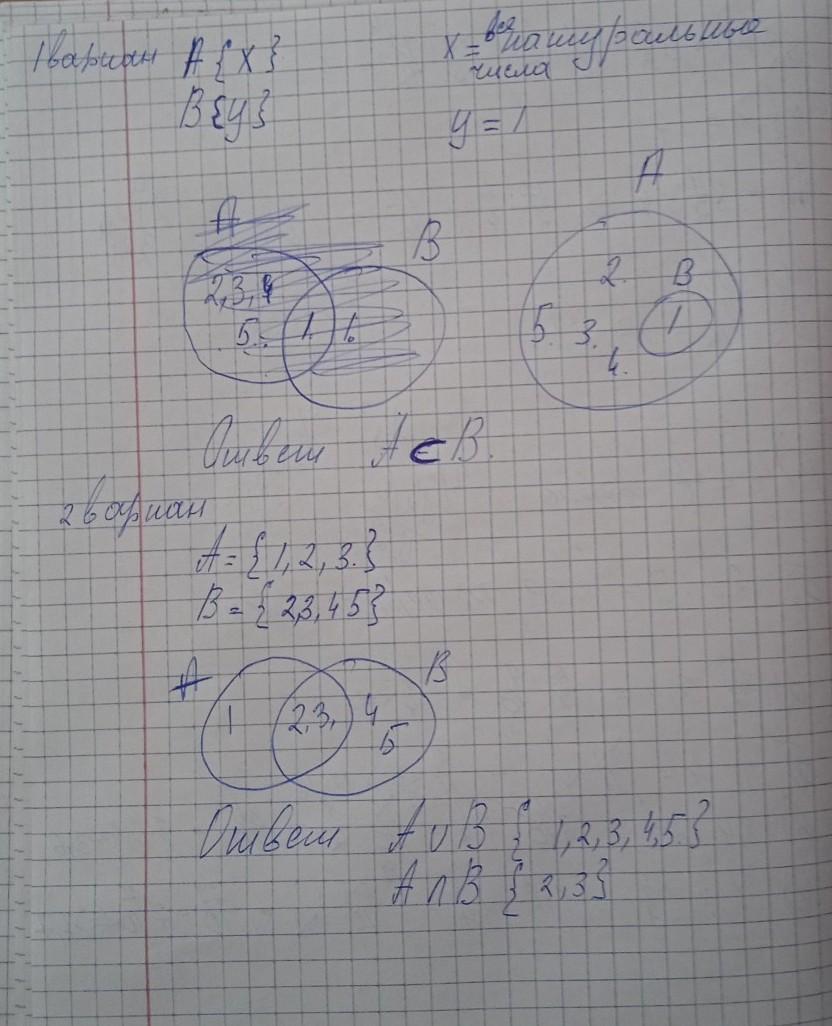 1 вариан A {x} x = все натуральные
числа
B{y} y = 1
A
A B
2,3,4 2. B
5. 1. 1. 5. 3. 1
4.
Ответ A ∈ B.
2 вариан
A = {1, 2, 3.}
B = {2,3, 4 5}
A B
1 2,3, 4
5
Ответ A ∪ B { 1,2,3,4,5.}
A ∩ B { 2,3}